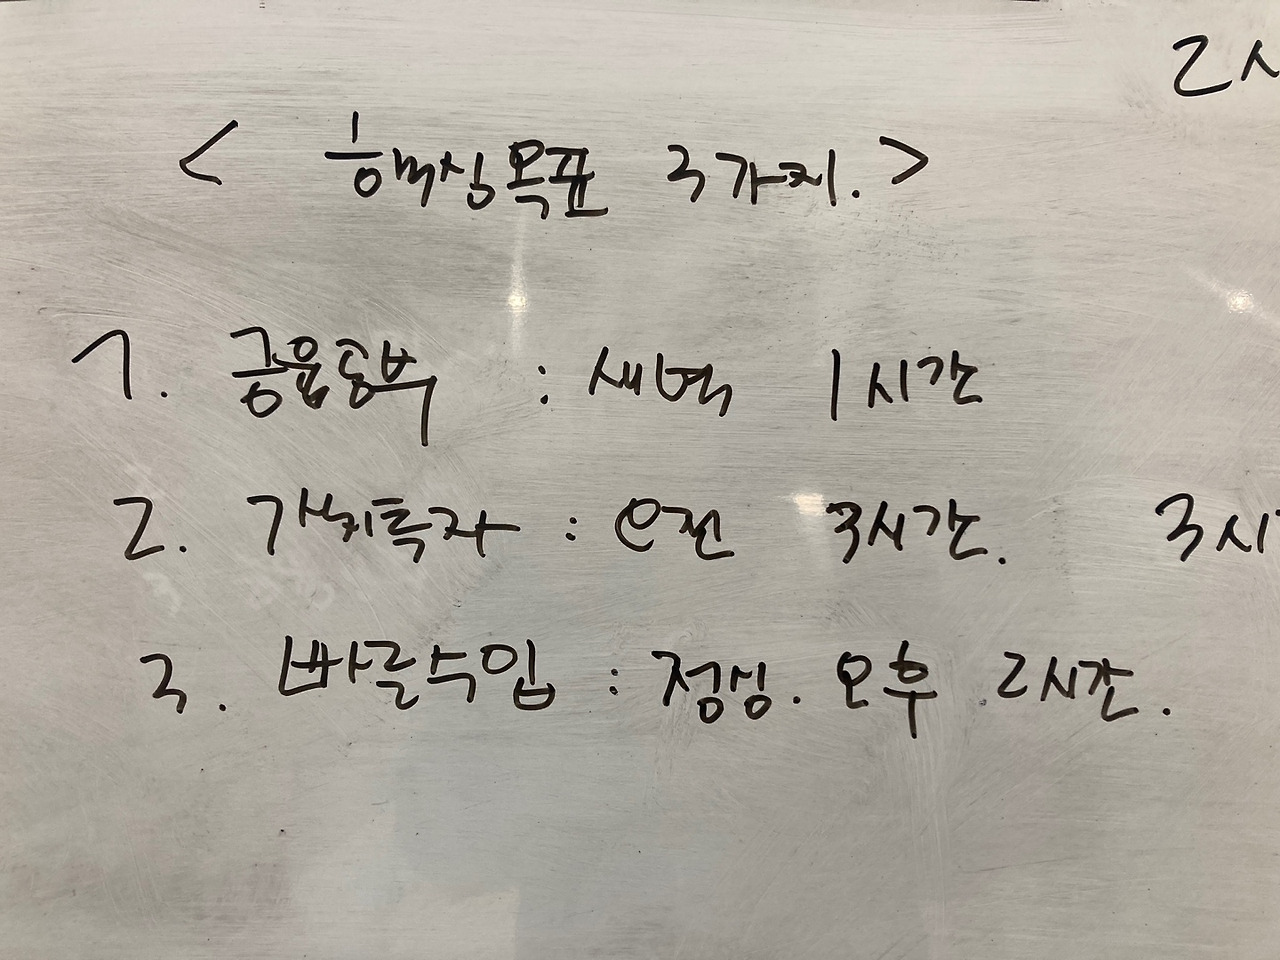 2시
< 핵심목표 3가지. >
1. 금융공부 : 새벽 1시간
2. 가치투자 : 오전 3시간. 3시
3. 바른수입 : 점심. 오후 2시간.